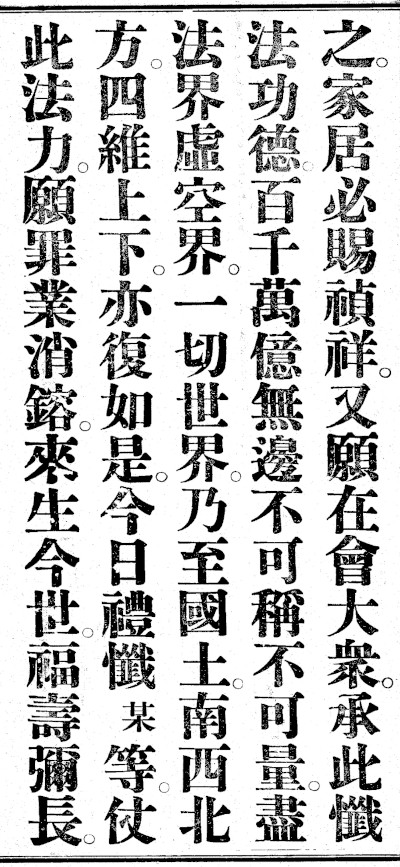 之。家居必賜禎祥。又願在會大衆。承此懺
法功德。百千萬億無邊不可稱不可量。盡
法界虛空界。一切世界。乃至國土。南西北
方。四維上下。亦復如是。今日禮懺某等。仗
此法力。願罪業消鎔。來生今世。福壽彌長。